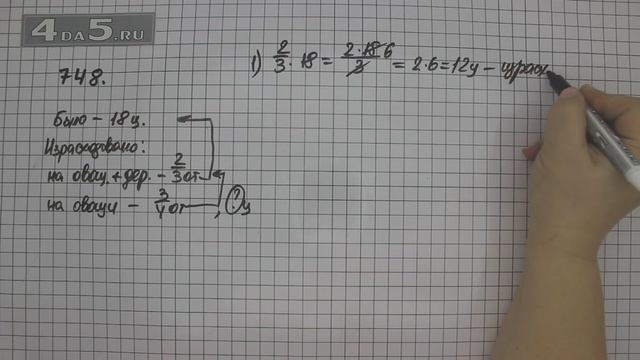 4DA5.RU
748.
Было – 18 ц.
Израсходовано:
на овощ. + дер. – 2/3 от
на овощи – 3/4 от , ? ц
1) 2/3 · 18 = 2·18 6/3 = 2·6=12ц – израсх